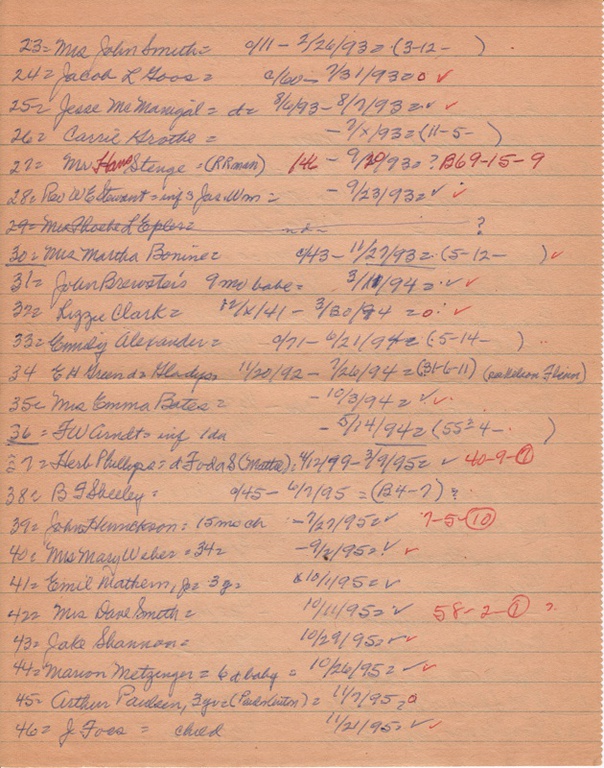 23= Mrs John Smith= c/11 - 2/26/93= (3-12- )
24= Jacob L Goos= c/60 - 7/31/93=0 ✓
25= Jesse Mc Manigal = d= 8/6/93 - 8/7/93=✓ ✓
26= Carrie Grothe= - 7/x/93=(11-5- )
27= Mr Hans Stenge =(RRman) 146 - 9/20/93=? B69-15-9
28= Rev W E Stewart=inf s Jas Wm= - 9/23/93=✓ ✓
29= Mrs Phoebe L Epler= ?
30= Mrs Martha Bonine= c/43 - 11/27/93= (5-12- )✓
31= John Brewster's 9 mo babe= 3/11/94=✓ ✓
32= Lizzie Clark= 12/x/41 - 3/30/94 =0 ✓
33= Emily Alexander= c/71 - 6/21/94= (5-14- )
34 E H Green d= Gladys 11/20/92 - 7/26/94 =(31-6-11)
35= Mrs Emma Bates= - 10/3/94=✓ ✓
36= F W Arndt= inf 1da - 5/14/94=(55-4- )
37= Herb Phillips= d Foda S (Matta), 4/12/99 - 3/9/95=✓ 40-9-①
38= B G Sheeley= c/45 - 6/7/95 =(B4-7) ?
39= John Hinrickson= 15 mo ch -7/27/95=✓ 7-5-⑩
40= Mrs Mary Weber =34= -9/2/95=✓ ✓
41= Emil Mathern, Jr= 3y= 10/1/95=✓ ✓
42= Mrs Dave Smith= 10/11/95=✓ 58-2-① ?
43= Jake Shannon= 10/29/95=✓✓
44= Marion Metzinger= 6 d baby = 10/26/95=✓ ✓
45= Arthur Paulsen, 3yr= = 11/7/95=0
46= J Foss = child 11/21/95=✓ ✓